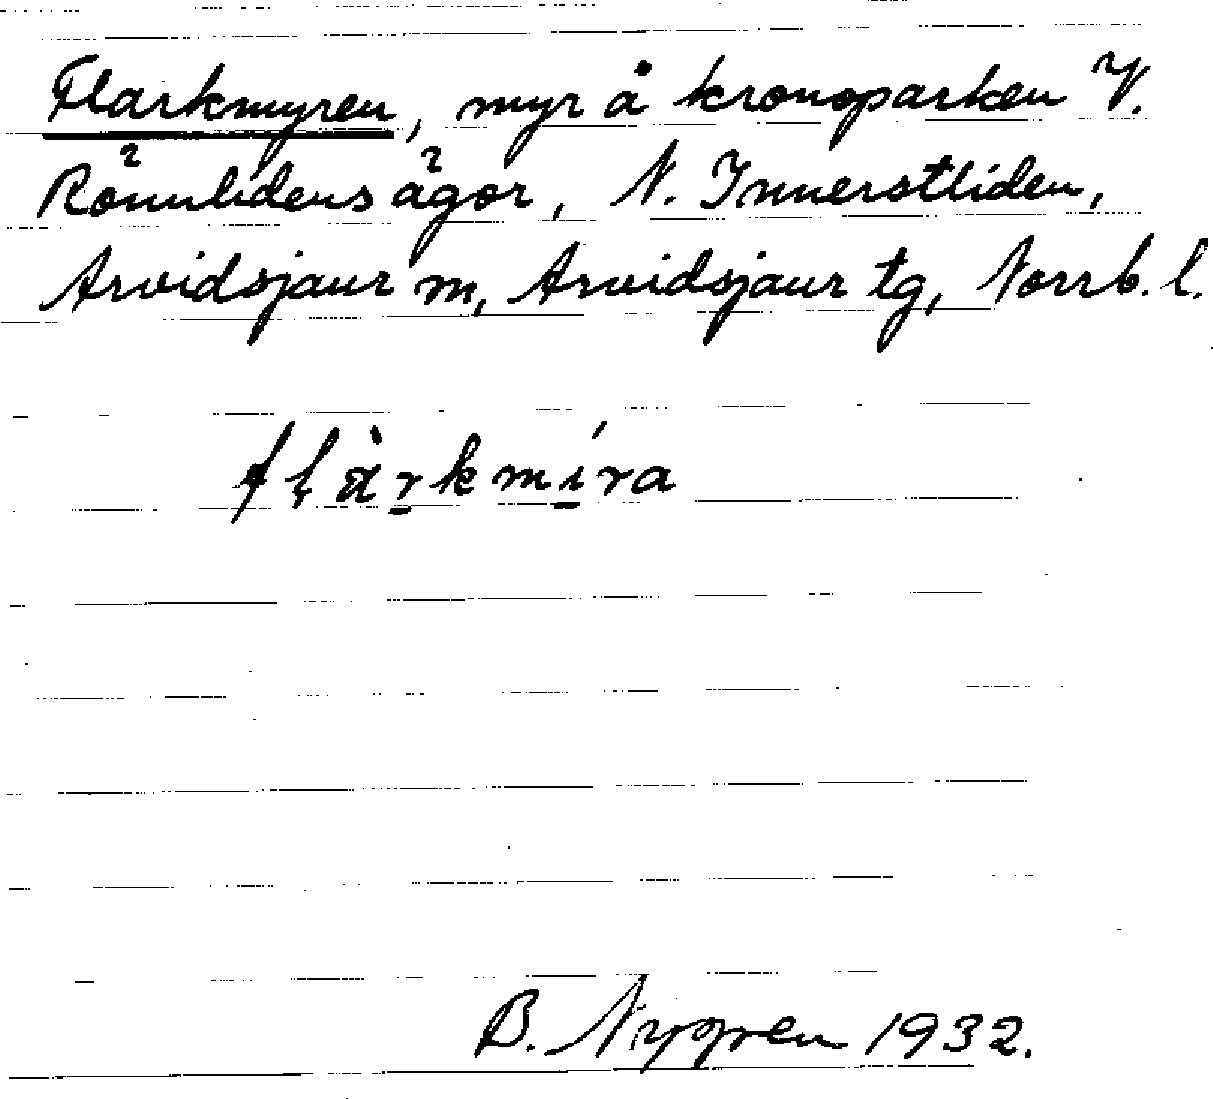 Flarkmyren, myr å kronoparken V.
Rönnlidens ägor, N. Innerstliden,
Arvidsjaur m, Arvidsjaur tg, Norrb. l.
flàrkmíra
B. Nygren 1932.